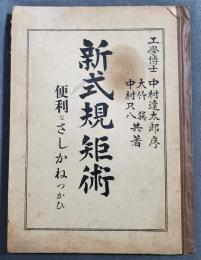 工學博士 中村達太郎序
大竹巽
中村只八 共著
新式規矩術
便利なさしかねつかひ